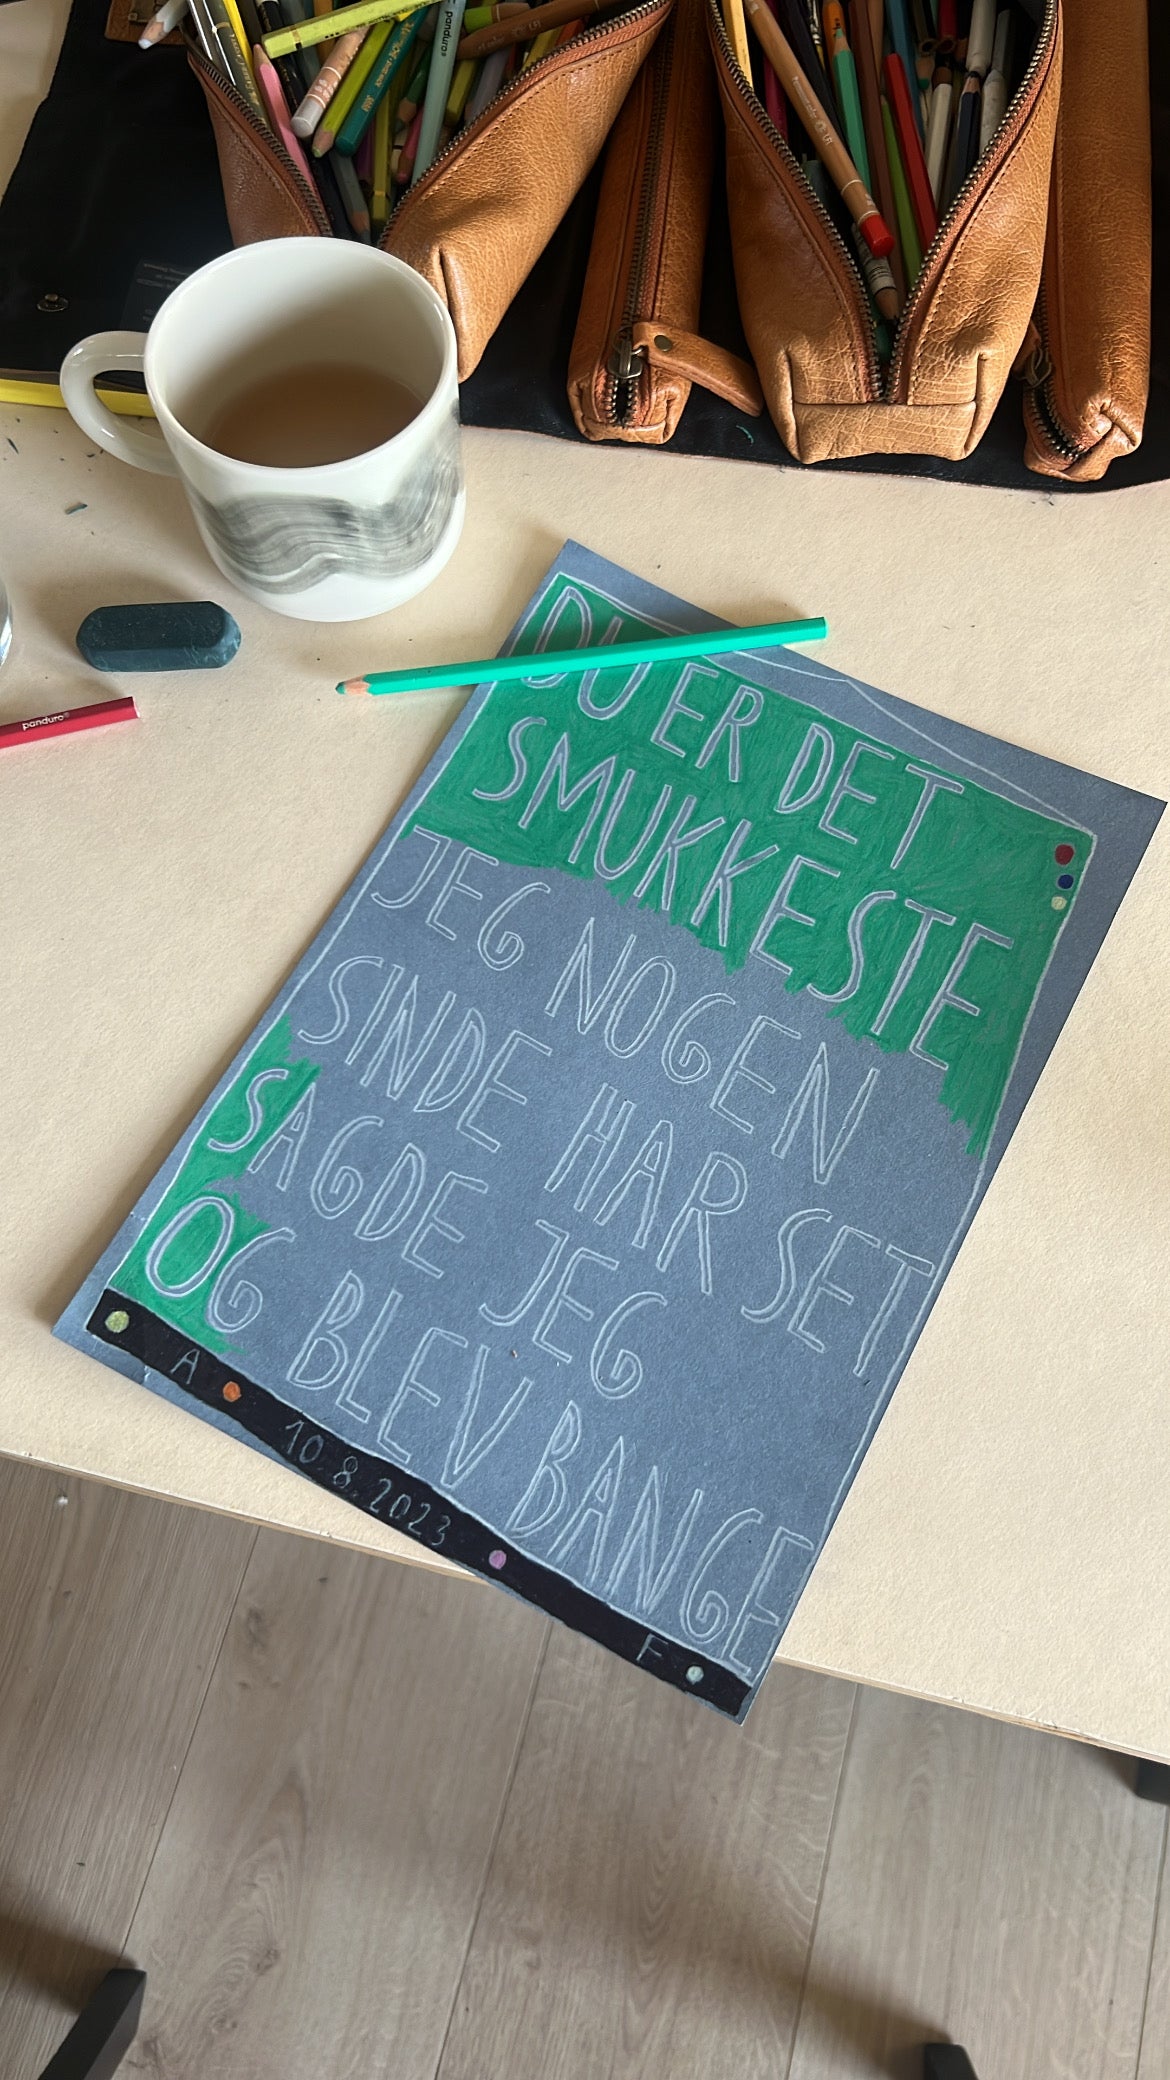 panduro®
panduro®
DU ER DET
SMUKKESTE
JEG NOGEN
SINDE HAR SET
SAGDE JEG
OG BLEV BANGE
A 10.8.2023 F